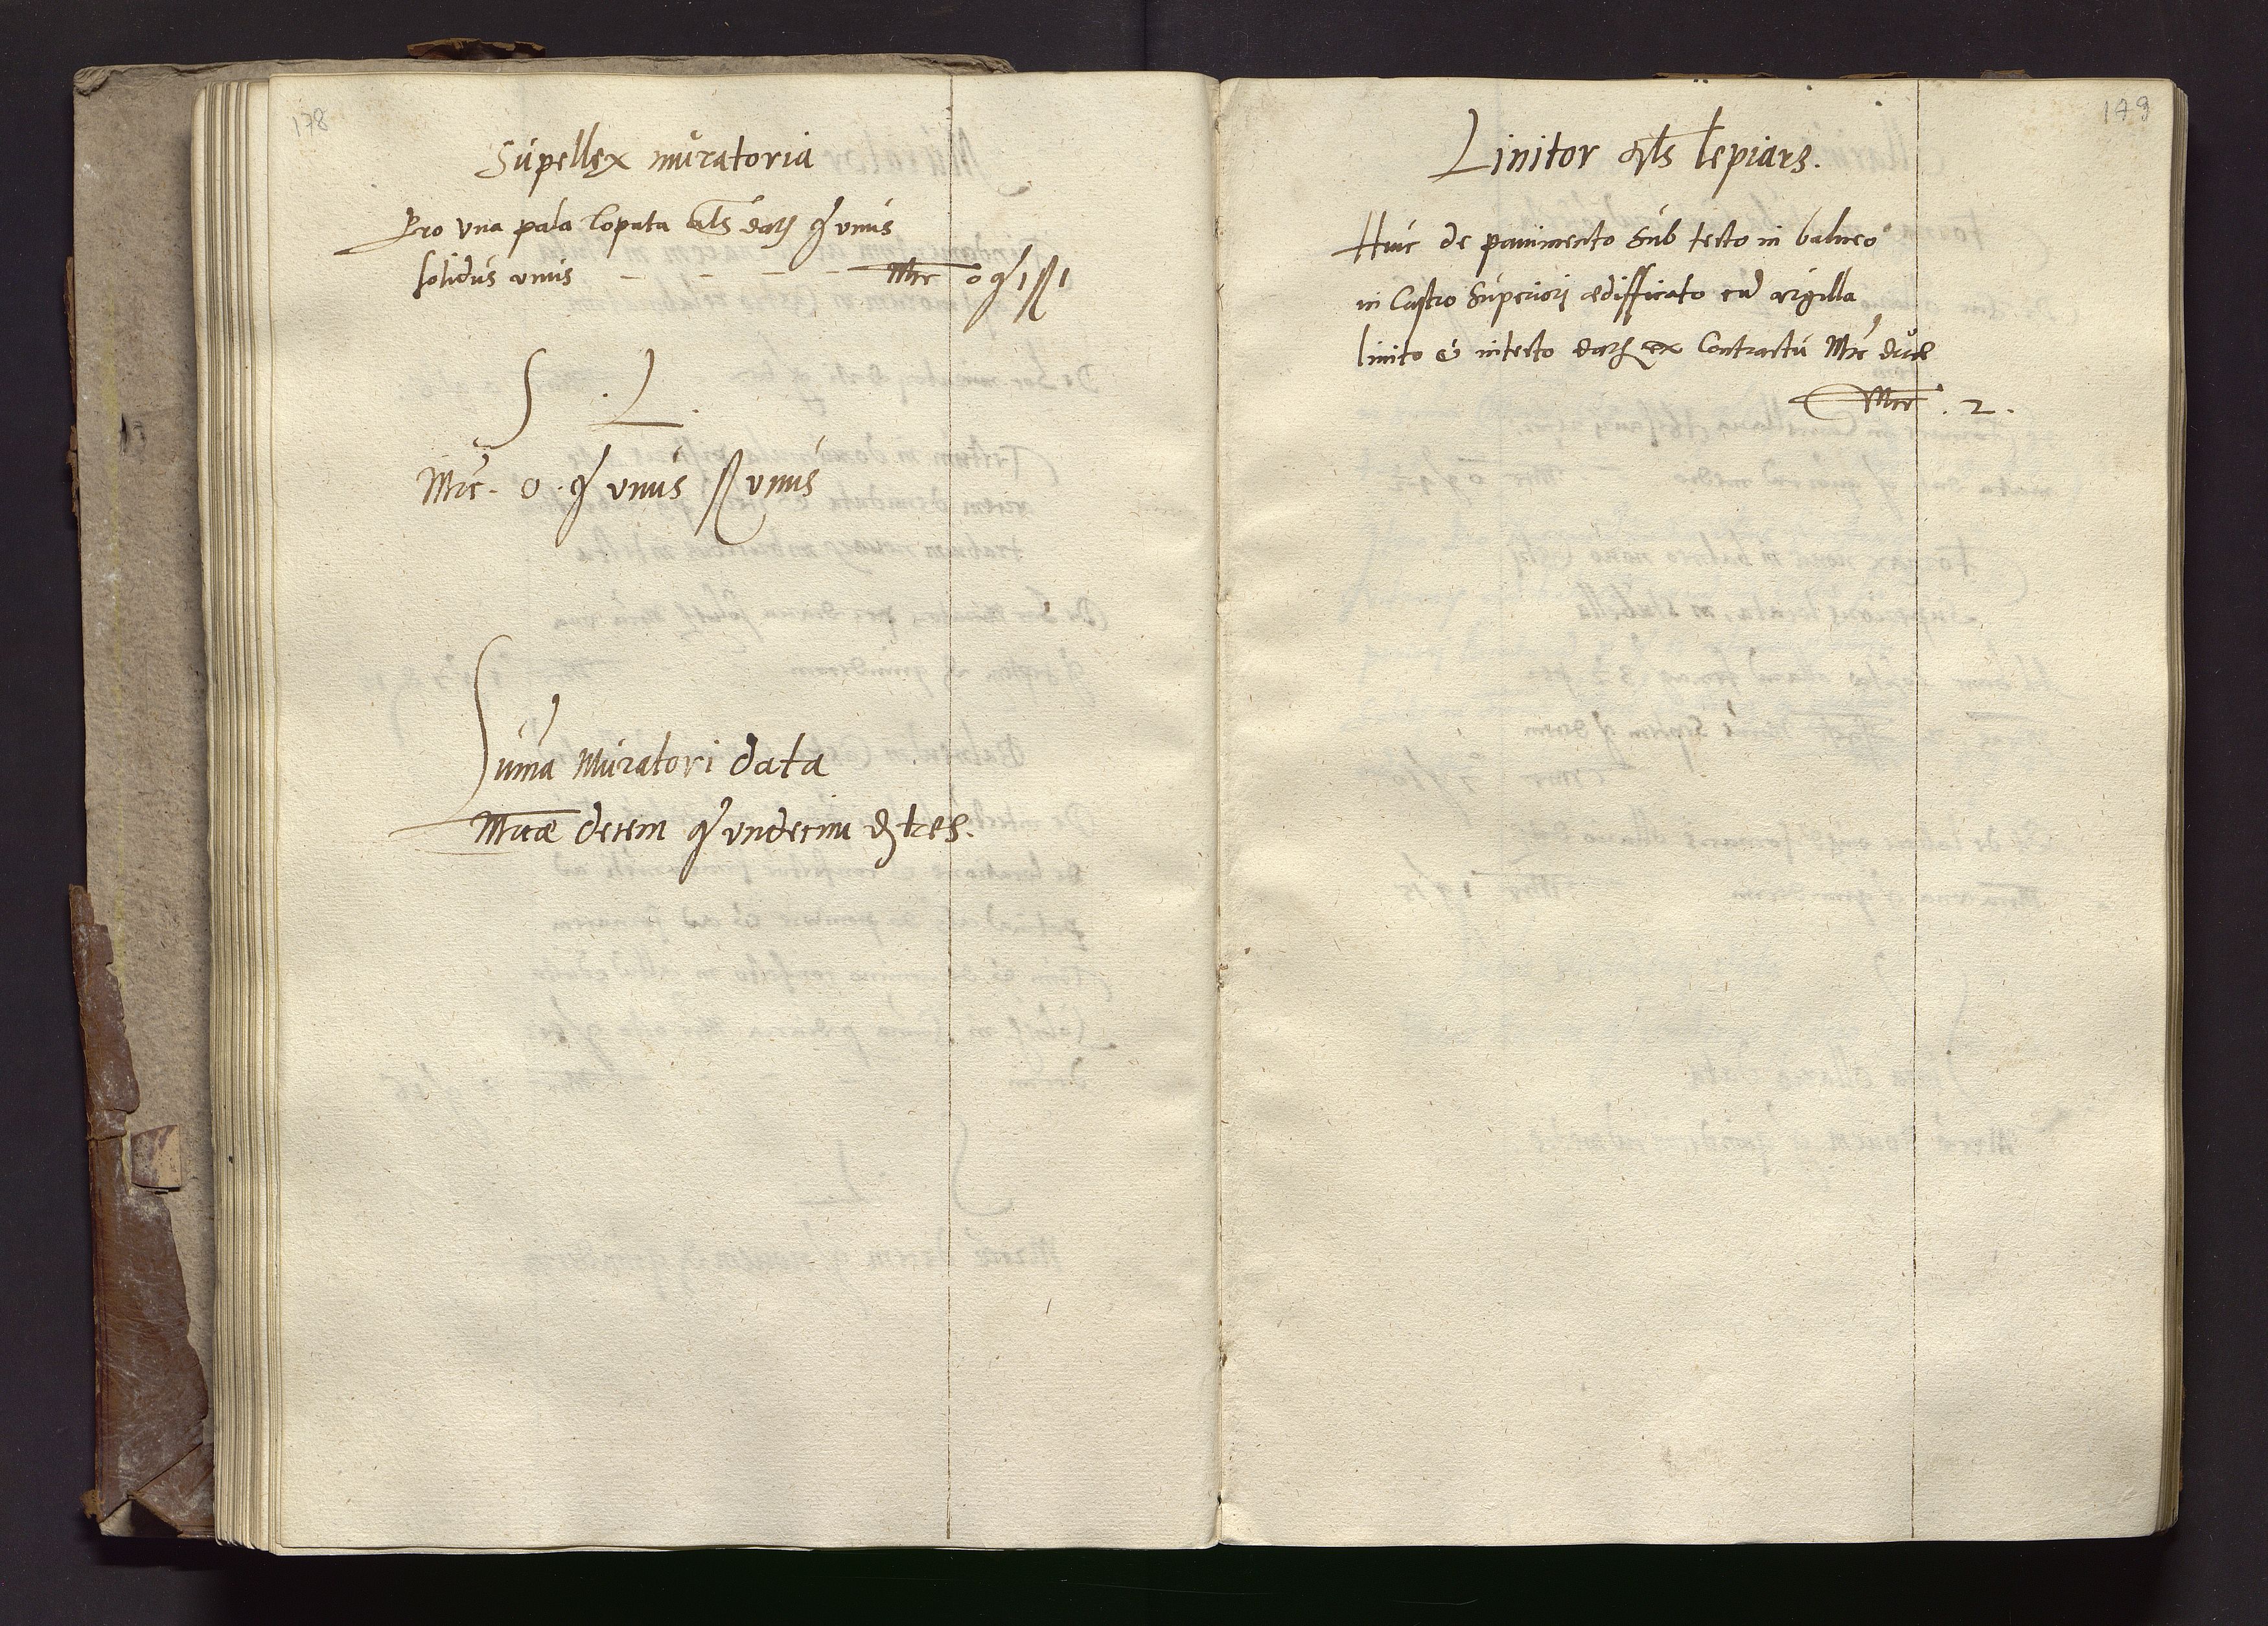 178
Supellex muratoria
Pro vna pala lopata als dat g vnus
solidus vnus - - - - Mrc 0 g 1 ß 1
S . L .
Mrc . 0 . g vnus ß vnus
Suma Muratori data
Mrcae decem g vndecim tres.
179
Linitor als lepiarz.
Huic de pauimento sub tecto in balneo
in Castro Superiori aedifficato cu argilla
linito & intecto dat ex Contractu Mrc duae
Mrc . 2 .